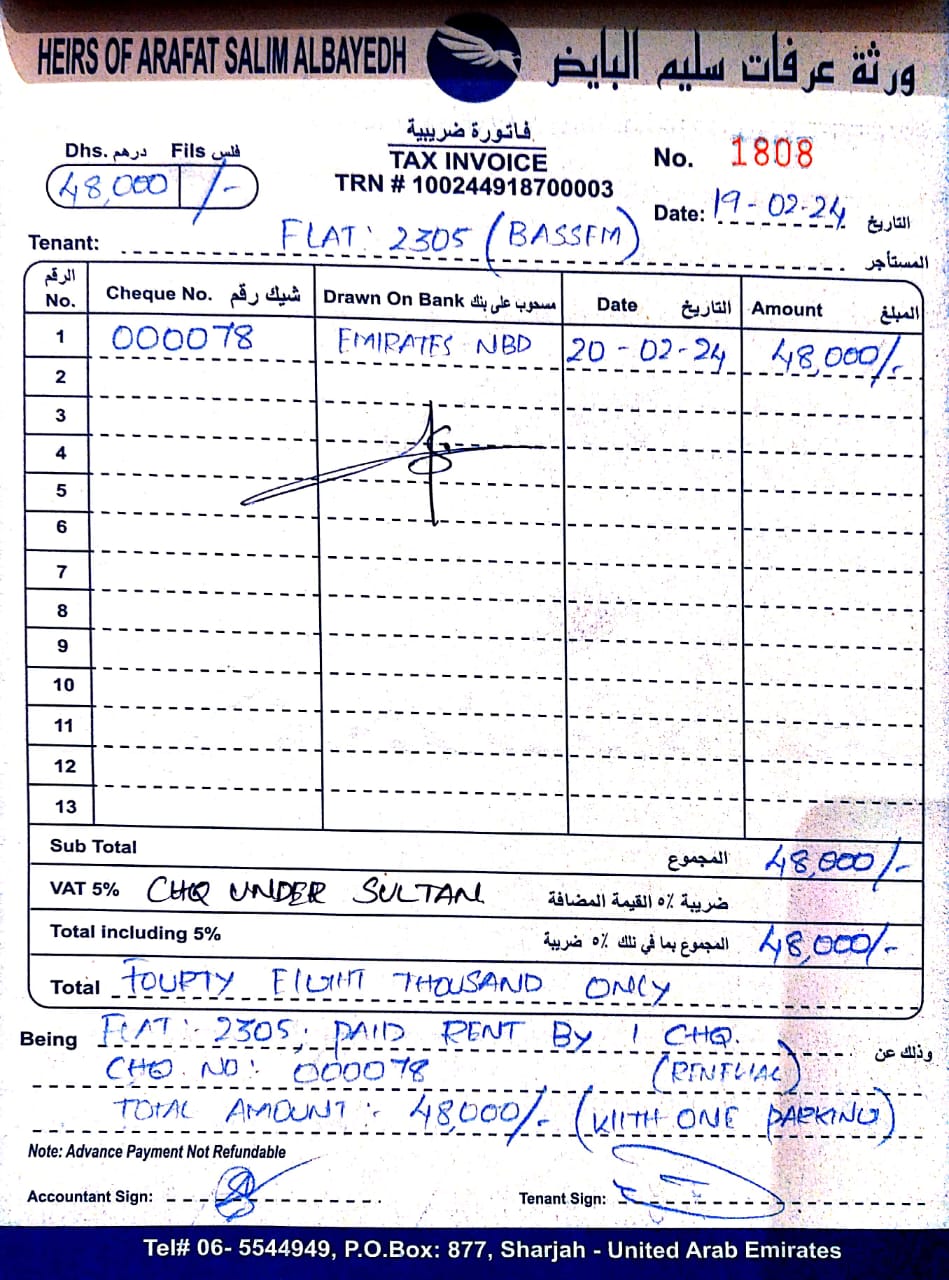 HEIRS OF ARAFAT SALIM ALBAYEDH ورثة عرفات سليم البايض
فاتورة ضريبية
Dhs. درهم Fils فلس
TAX INVOICE
No. 1808
48,000 /-
TRN # 100244918700003
Date: 19-02-24 التاريخ
Tenant: FLAT: 2305 (BASSEM) المستأجر
الرقم No. Cheque No. شيك رقم Drawn On Bank مسحوب على بنك Date التاريخ Amount المبلغ
1 000078 EMIRATES NBD 20-02-24 48,000/-
2
3
4
5
6
7
8
9
10
11
12
13
Sub Total المجموع 48,000/-
VAT 5% CHQ UNDER SULTAN ضريبة ٥٪ القيمة المضافة
Total including 5% المجموع بما في ذلك ٥٪ ضريبة 48,000/-
Total FOURTY EIGHT THOUSAND ONLY
Being FLAT:- 2305, PAID RENT BY 1 CHQ. وذلك عن
CHQ. NO:- 000078 (RENEWAL)
TOTAL AMOUNT:- 48,000/- (WITH ONE PARKING)
Note: Advance Payment Not Refundable
Accountant Sign: Tenant Sign:
Tel# 06- 5544949, P.O.Box: 877, Sharjah - United Arab Emirates